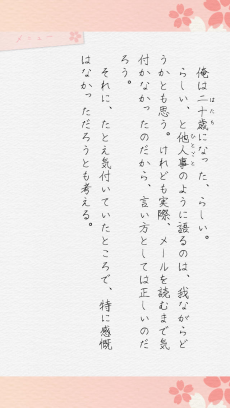 メニュー
俺は二十歳になった、らしい。
らしい、と他人事のように語るのは、我ながらど
うかとも思う。けれども実際、メールを読むまで気
付かなかったのだから、言い方としては正しいのだ
ろう。
それに、たとえ気付いていたところで、特に感慨
はなかっただろうとも考える。
はたち
ひとごと